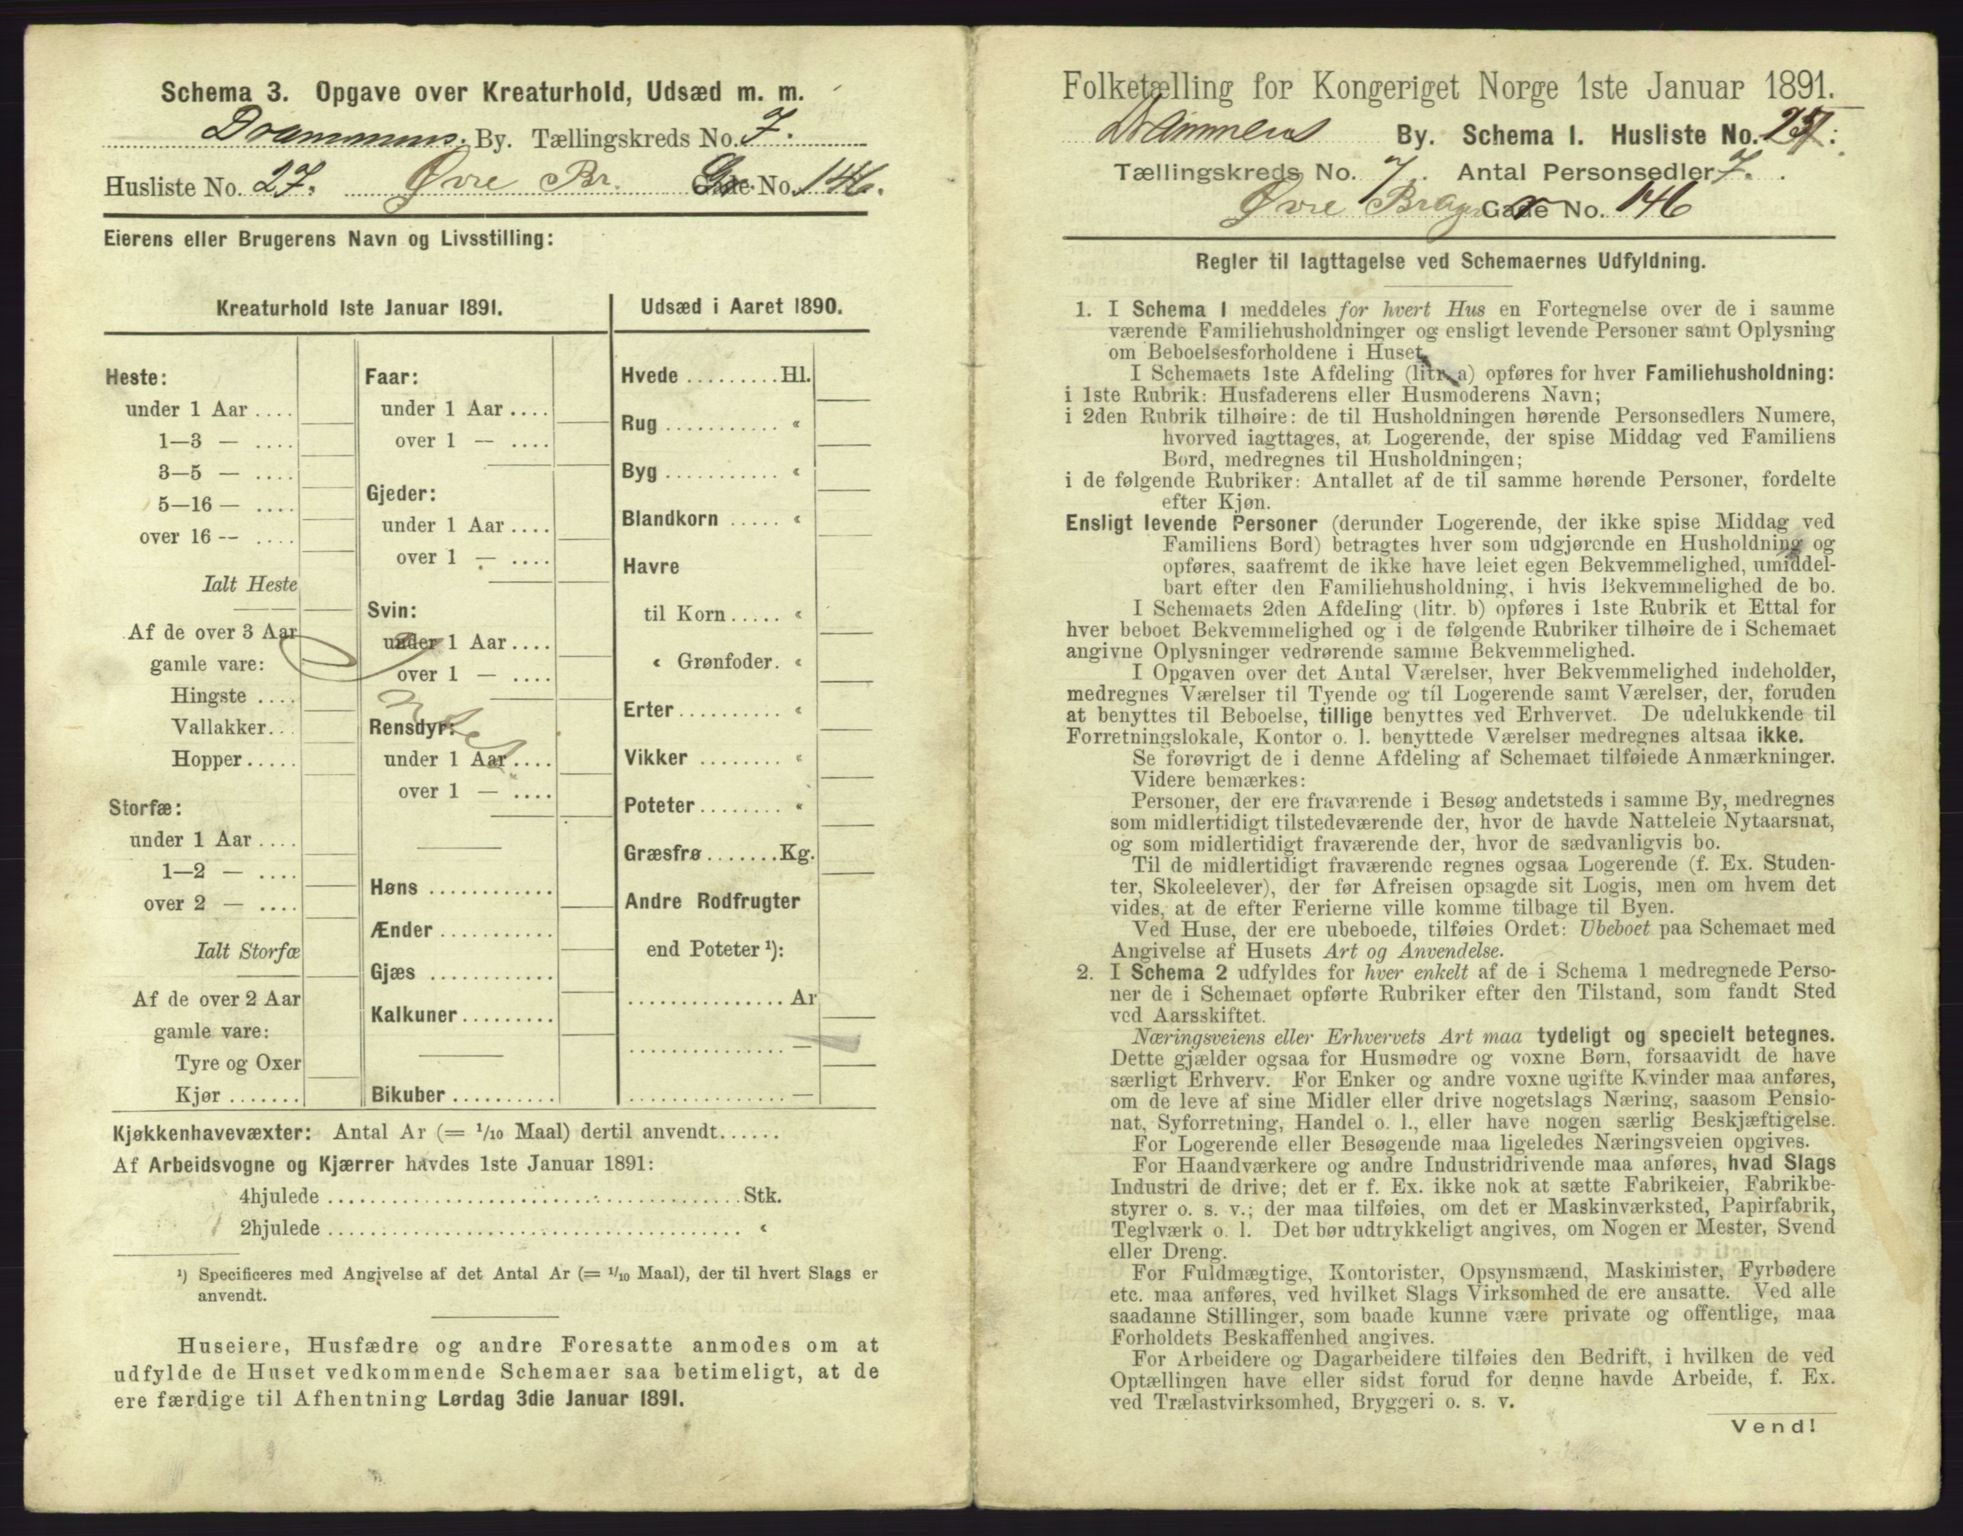 Schema 3. Opgave over Kreaturhold, Udsæd m. m.
Drammens By. Tællingskreds No. 7.
Husliste No. 27. Øvre Br. Gade No. 146.
Eierens eller Brugerens Navn og Livsstilling:
Kreaturhold 1ste Januar 1891.
Heste:
under 1 Aar ....
1—3 — ....
3—5 — ....
5—16 — ....
over 16 — ....
Ialt Heste
Af de over 3 Aar
gamle vare:
Hingste ....
Vallakker...
Hopper .....
Storfæ:
under 1 Aar ....
1—2 — ....
over 2 — ....
Ialt Storfæ
Af de over 2 Aar
gamle vare:
Tyre og Oxer
Kjør .......
Faar:
under 1 Aar ....
over 1 — ....
Gjeder:
under 1 Aar ....
over 1 — ....
Svin:
under 1 Aar ....
over 1 — ....
Rensdyr:
under 1 Aar ....
over 1 — ....
Høns ............
Ænder ...........
Gjæs ............
Kalkuner.........
Bikuber ..........
Udsæd i Aaret 1890.
Hvede .........Hl.
Rug ........... «
Byg ........... «
Blandkorn ..... «
Havre
til Korn ..... «
« Grønfoder. «
Erter.......... «
Vikker ........ «
Poteter........ «
Græsfrø .......Kg.
Andre Rodfrugter
end Poteter ¹):
............... Ar
............... —
............... —
Kjøkkenhavevæxter: Antal Ar (= 1/10 Maal) dertil anvendt......
Af Arbeidsvogne og Kjærrer havdes 1ste Januar 1891:
4hjulede .......................................Stk.
2hjulede ....................................... «
¹) Specificeres med Angivelse af det Antal Ar (= 1/10 Maal), der til hvert Slags er
anvendt.
Huseiere, Husfædre og andre Foresatte anmodes om at
udfylde de Huset vedkommende Schemaer saa betimeligt, at de
ere færdige til Afhentning Lørdag 3die Januar 1891.
Folketælling for Kongeriget Norge 1ste Januar 1891.
Drammens By. Schema 1. Husliste No. 27.
Tællingskreds No. 7. Antal Personsedler 7.
Øvre Brag Gade No. 146
Regler til Iagttagelse ved Schemaernes Udfyldning.
1. I Schema 1 meddeles for hvert Hus en Fortegnelse over de i samme
værende Familiehusholdninger og ensligt levende Personer samt Oplysning
om Beboelsesforholdene i Huset.
I Schemaets 1ste Afdeling (litr. a) opføres for hver Familiehusholdning:
i 1ste Rubrik: Husfaderens eller Husmoderens Navn;
i 2den Rubrik tilhøire: de til Husholdningen hørende Personsedlers Numere,
hvorved iagttages, at Logerende, der spise Middag ved Familiens
Bord, medregnes til Husholdningen;
i de følgende Rubriker: Antallet af de til samme hørende Personer, fordelte
efter Kjøn.
Ensligt levende Personer (derunder Logerende, der ikke spise Middag ved
Familiens Bord) betragtes hver som udgjørende en Husholdning og
opføres, saafremt de ikke have leiet egen Bekvemmelighed, umiddel-
bart efter den Familiehusholdning, i hvis Bekvemmelighed de bo.
I Schemaets 2den Afdeling (litr. b) opføres i 1ste Rubrik et Ettal for
hver beboet Bekvemmelighed og i de følgende Rubriker tilhøire de i Schemaet
angivne Oplysninger vedrørende samme Bekvemmelighed.
I Opgaven over det Antal Værelser, hver Bekvemmelighed indeholder,
medregnes Værelser til Tyende og til Logerende samt Værelser, der, foruden
at benyttes til Beboelse, tillige benyttes ved Erhvervet. De udelukkende til
Forretningslokale, Kontor o. l. benyttede Værelser medregnes altsaa ikke.
Se forøvrigt de i denne Afdeling af Schemaet tilføiede Anmærkninger.
Videre bemærkes:
Personer, der ere fraværende i Besøg andetsteds i samme By, medregnes
som midlertidigt tilstedeværende der, hvor de havde Natteleie Nytaarsnat,
og som midlertidigt fraværende der, hvor de sædvanligvis bo.
Til de midlertidigt fraværende regnes ogsaa Logerende (f. Ex. Studen-
ter, Skoleelever), der før Afreisen opsagde sit Logis, men om hvem det
vides, at de efter Ferierne ville komme tilbage til Byen.
Ved Huse, der ere ubeboede, tilføies Ordet: Ubeboet paa Schemaet med
Angivelse af Husets Art og Anvendelse.
2. I Schema 2 udfyldes for hver enkelt af de i Schema 1 medregnede Perso-
ner de i Schemaet opførte Rubriker efter den Tilstand, som fandt Sted
ved Aarsskiftet.
Næringsveiens eller Erhvervets Art maa tydeligt og specielt betegnes.
Dette gjælder ogsaa for Husmødre og voxne Børn, forsaavidt de have
særligt Erhverv. For Enker og andre voxne ugifte Kvinder maa anføres,
om de leve af sine Midler eller drive nogetslags Næring, saasom Pensio-
nat, Syforretning, Handel o. l., eller have nogen særlig Beskjæftigelse.
For Logerende eller Besøgende maa ligeledes Næringsveien opgives.
For Haandværkere og andre Industridrivende maa anføres, hvad Slags
Industri de drive; det er f. Ex. ikke nok at sætte Fabrikeier, Fabrikbe-
styrer o. s. v.; der maa tilføies, om det er Maskinværksted, Papirfabrik,
Teglværk o. l. Det bør udtrykkeligt angives, om Nogen er Mester, Svend
eller Dreng.
For Fuldmægtige, Kontorister, Opsynsmænd, Maskinister, Fyrbødere
etc. maa anføres, ved hvilket Slags Virksomhed de ere ansatte. Ved alle
saadanne Stillinger, som baade kunne være private og offentlige, maa
Forholdets Beskaffenhed angives.
For Arbeidere og Dagarbeidere tilføies den Bedrift, i hvilken de ved
Optællingen have eller sidst forud for denne havde Arbeide, f. Ex.
ved Trælastvirksomhed, Bryggeri o. s. v.
Vend!